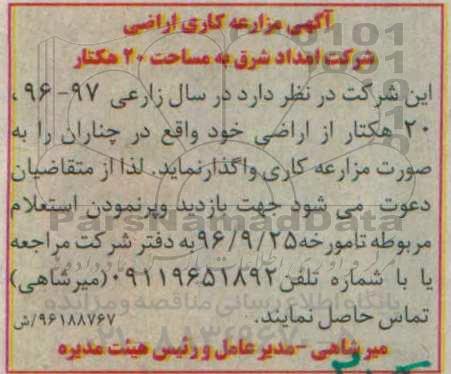 آگهی مزارعه کاری اراضی
شرکت امداد شرق به مساحت ۲۰ هکتار
این شرکت در نظر دارد در سال زراعی ۹۷-۹۶،
۲۰ هکتار از اراضی خود واقع در چناران را به
صورت مزارعه کاری واگذارنماید. لذا از متقاضیان
دعوت می شود جهت بازدید وپرنمودن استعلام
مربوطه تامورخه۹۶/۹/۲۵به دفتر شرکت مراجعه
یا با شماره تلفن۰۹۱۱۹۶۵۱۸۹۲(میرشاهی)
تماس حاصل نمایند. ۹۶۱۸۸۷۶۷/ش
میرشاهی -مدیرعامل و رئیس هیئت مدیره
ParsNamadData
پایگاه اطلاع رسانی مناقصه ومزایده